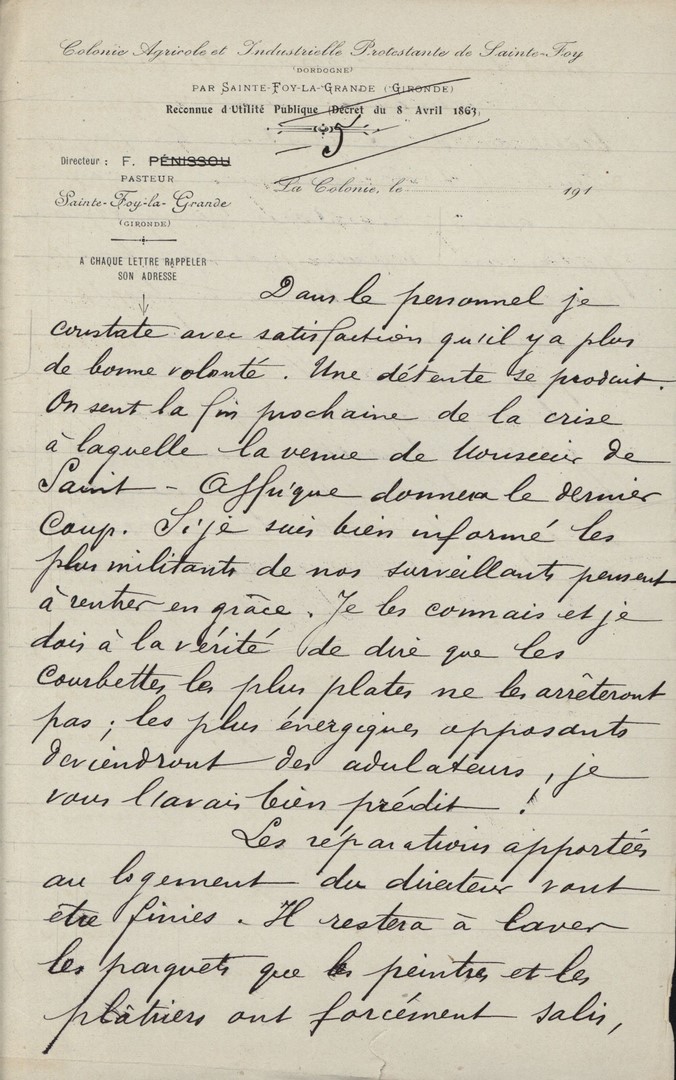 Colonie Agricole et Industrielle Protestante de Sainte-Foy
(DORDOGNE)
PAR SAINTE-FOY-LA-GRANDE (GIRONDE)
Reconnue d'Utilité Publique (Décret du 8 Avril 1863)
5
Directeur : F. PÉNISSOU
PASTEUR
Sainte-Foy-la-Grande
(GIRONDE)
La Colonie, le 191
A CHAQUE LETTRE RAPPELER
SON ADRESSE
Dans le personnel je
constate avec satisfaction qu'il y a plus
de bonne volonté. Une détente se produit.
On sent la fin prochaine de la crise
à laquelle la venue de Monsieur de
Saint-Affrique donnera le dernier
coup. Si je suis bien informé les
plus militants de nos surveillants pensent
à rentrer en grâce. Je les connais et je
dois à la vérité de dire que les
courbettes les plus plates ne les arrêteront
pas ; les plus énergiques opposants
deviendront des adulateurs, je
vous l'avais bien prédit !
Les réparations apportées
au logement du directeur vont
être finies. Il restera à laver
les parquets que les peintres et les
plâtriers ont forcément salis,